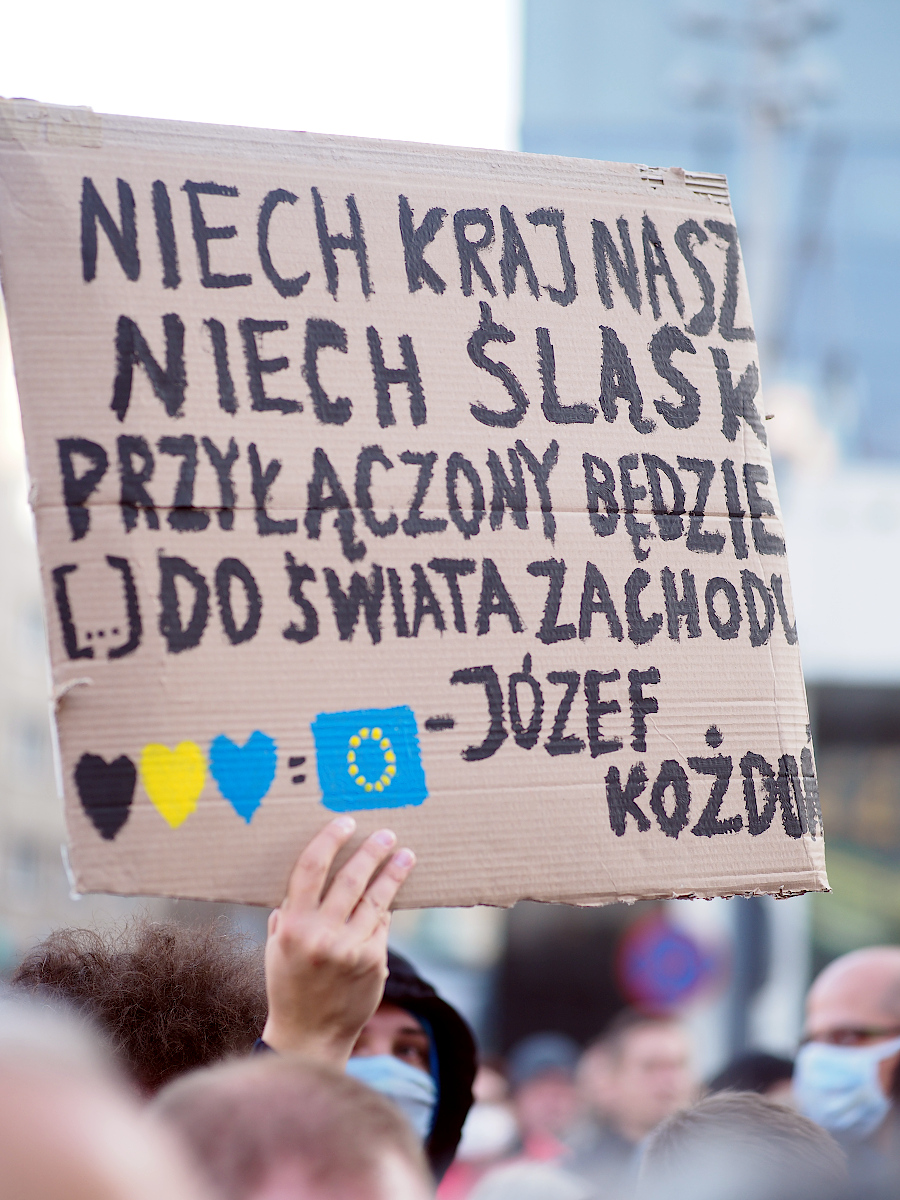 NIECH KRAJ NASZ
NIECH ŚLĄSK
PRZYŁĄCZONY BĘDZIE
[...] DO ŚWIATA ZACHODU
-JÓZEF
KOŻDOŃ